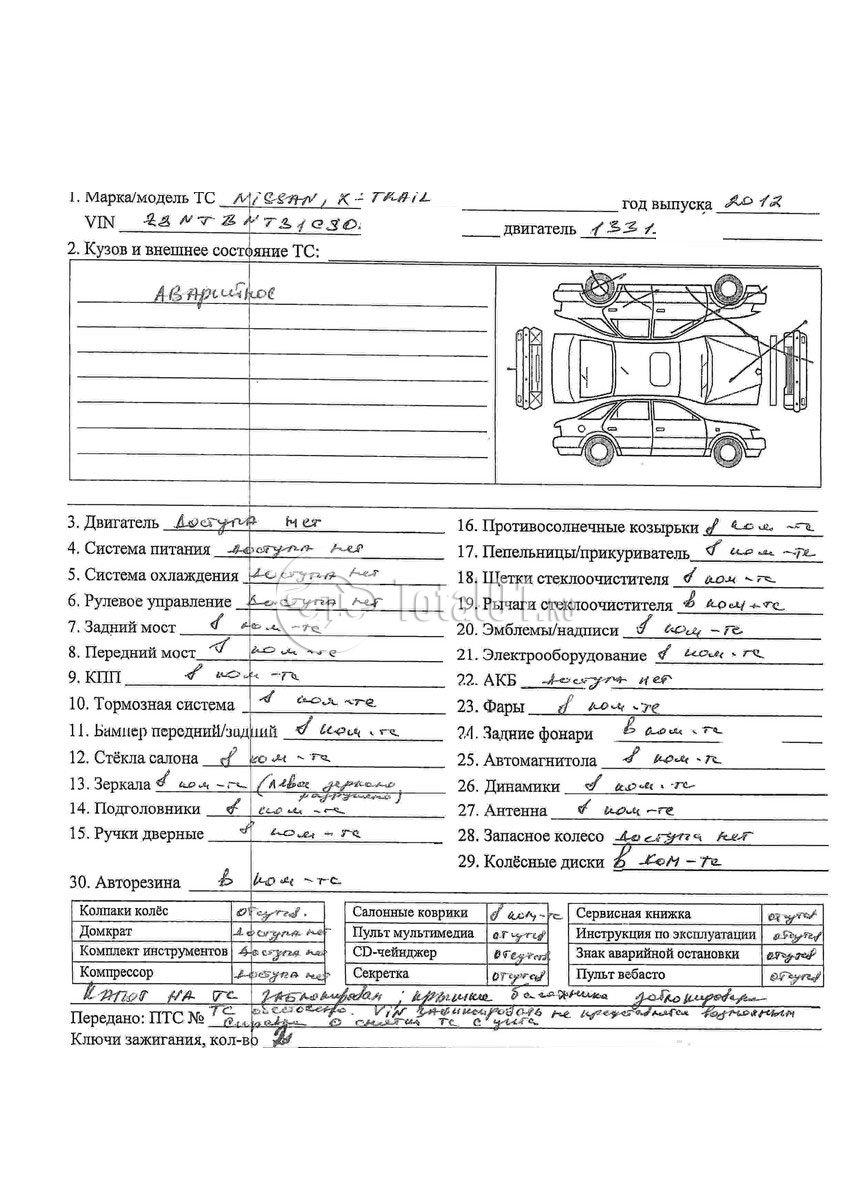 1. Марка/модель ТС NISSAN, X-TRAIL год выпуска 2012
VIN Z8NTBNT31C30. двигатель 1331.
2. Кузов и внешнее состояние ТС:
Аварийное
3. Двигатель Доступа нет
4. Система питания доступа нет
5. Система охлаждения доступа нет
6. Рулевое управление доступа нет
7. Задний мост в ком-те
8. Передний мост в ком-те
9. КПП в ком-те
10. Тормозная система в ком-те
11. Бампер передний/задний в ком-те
12. Стёкла салона в ком-те
13. Зеркала в ком-те (левое зеркало разрушено)
14. Подголовники в ком-те
15. Ручки дверные в ком-те
16. Противосолнечные козырьки в ком-те
17. Пепельницы/прикуриватель в ком-те
18. Щетки стеклоочистителя в ком-те
19. Рычаги стеклоочистителя в ком-те
20. Эмблемы/надписи в ком-те
21. Электрооборудование в ком-те
22. АКБ доступа нет
23. Фары в ком-те
24. Задние фонари в ком-те
25. Автомагнитола в ком-те
26. Динамики в ком-те
27. Антенна в ком-те
28. Запасное колесо доступа нет
29. Колёсные диски в ком-те
30. Авторезина в ком-те
Колпаки колёс отсутств.
Домкрат доступа нет
Комплект инструментов доступа нет
Компрессор доступа нет
Салонные коврики в ком-те
Пульт мультимедиа отсутств
CD-чейнджер отсутств
Секретка отсутств
Сервисная книжка отсутств
Инструкция по эксплуатации отсутств
Знак аварийной остановки отсутств
Пульт вебасто отсутств
Капот на ТС заблокирован; крышка багажника заблокирована
ТС обесточено. VIN зафиксировать не представляется возможным
Передано: ПТС № Справка о снятии ТС с учета
Ключи зажигания, кол-во
Total01.RU